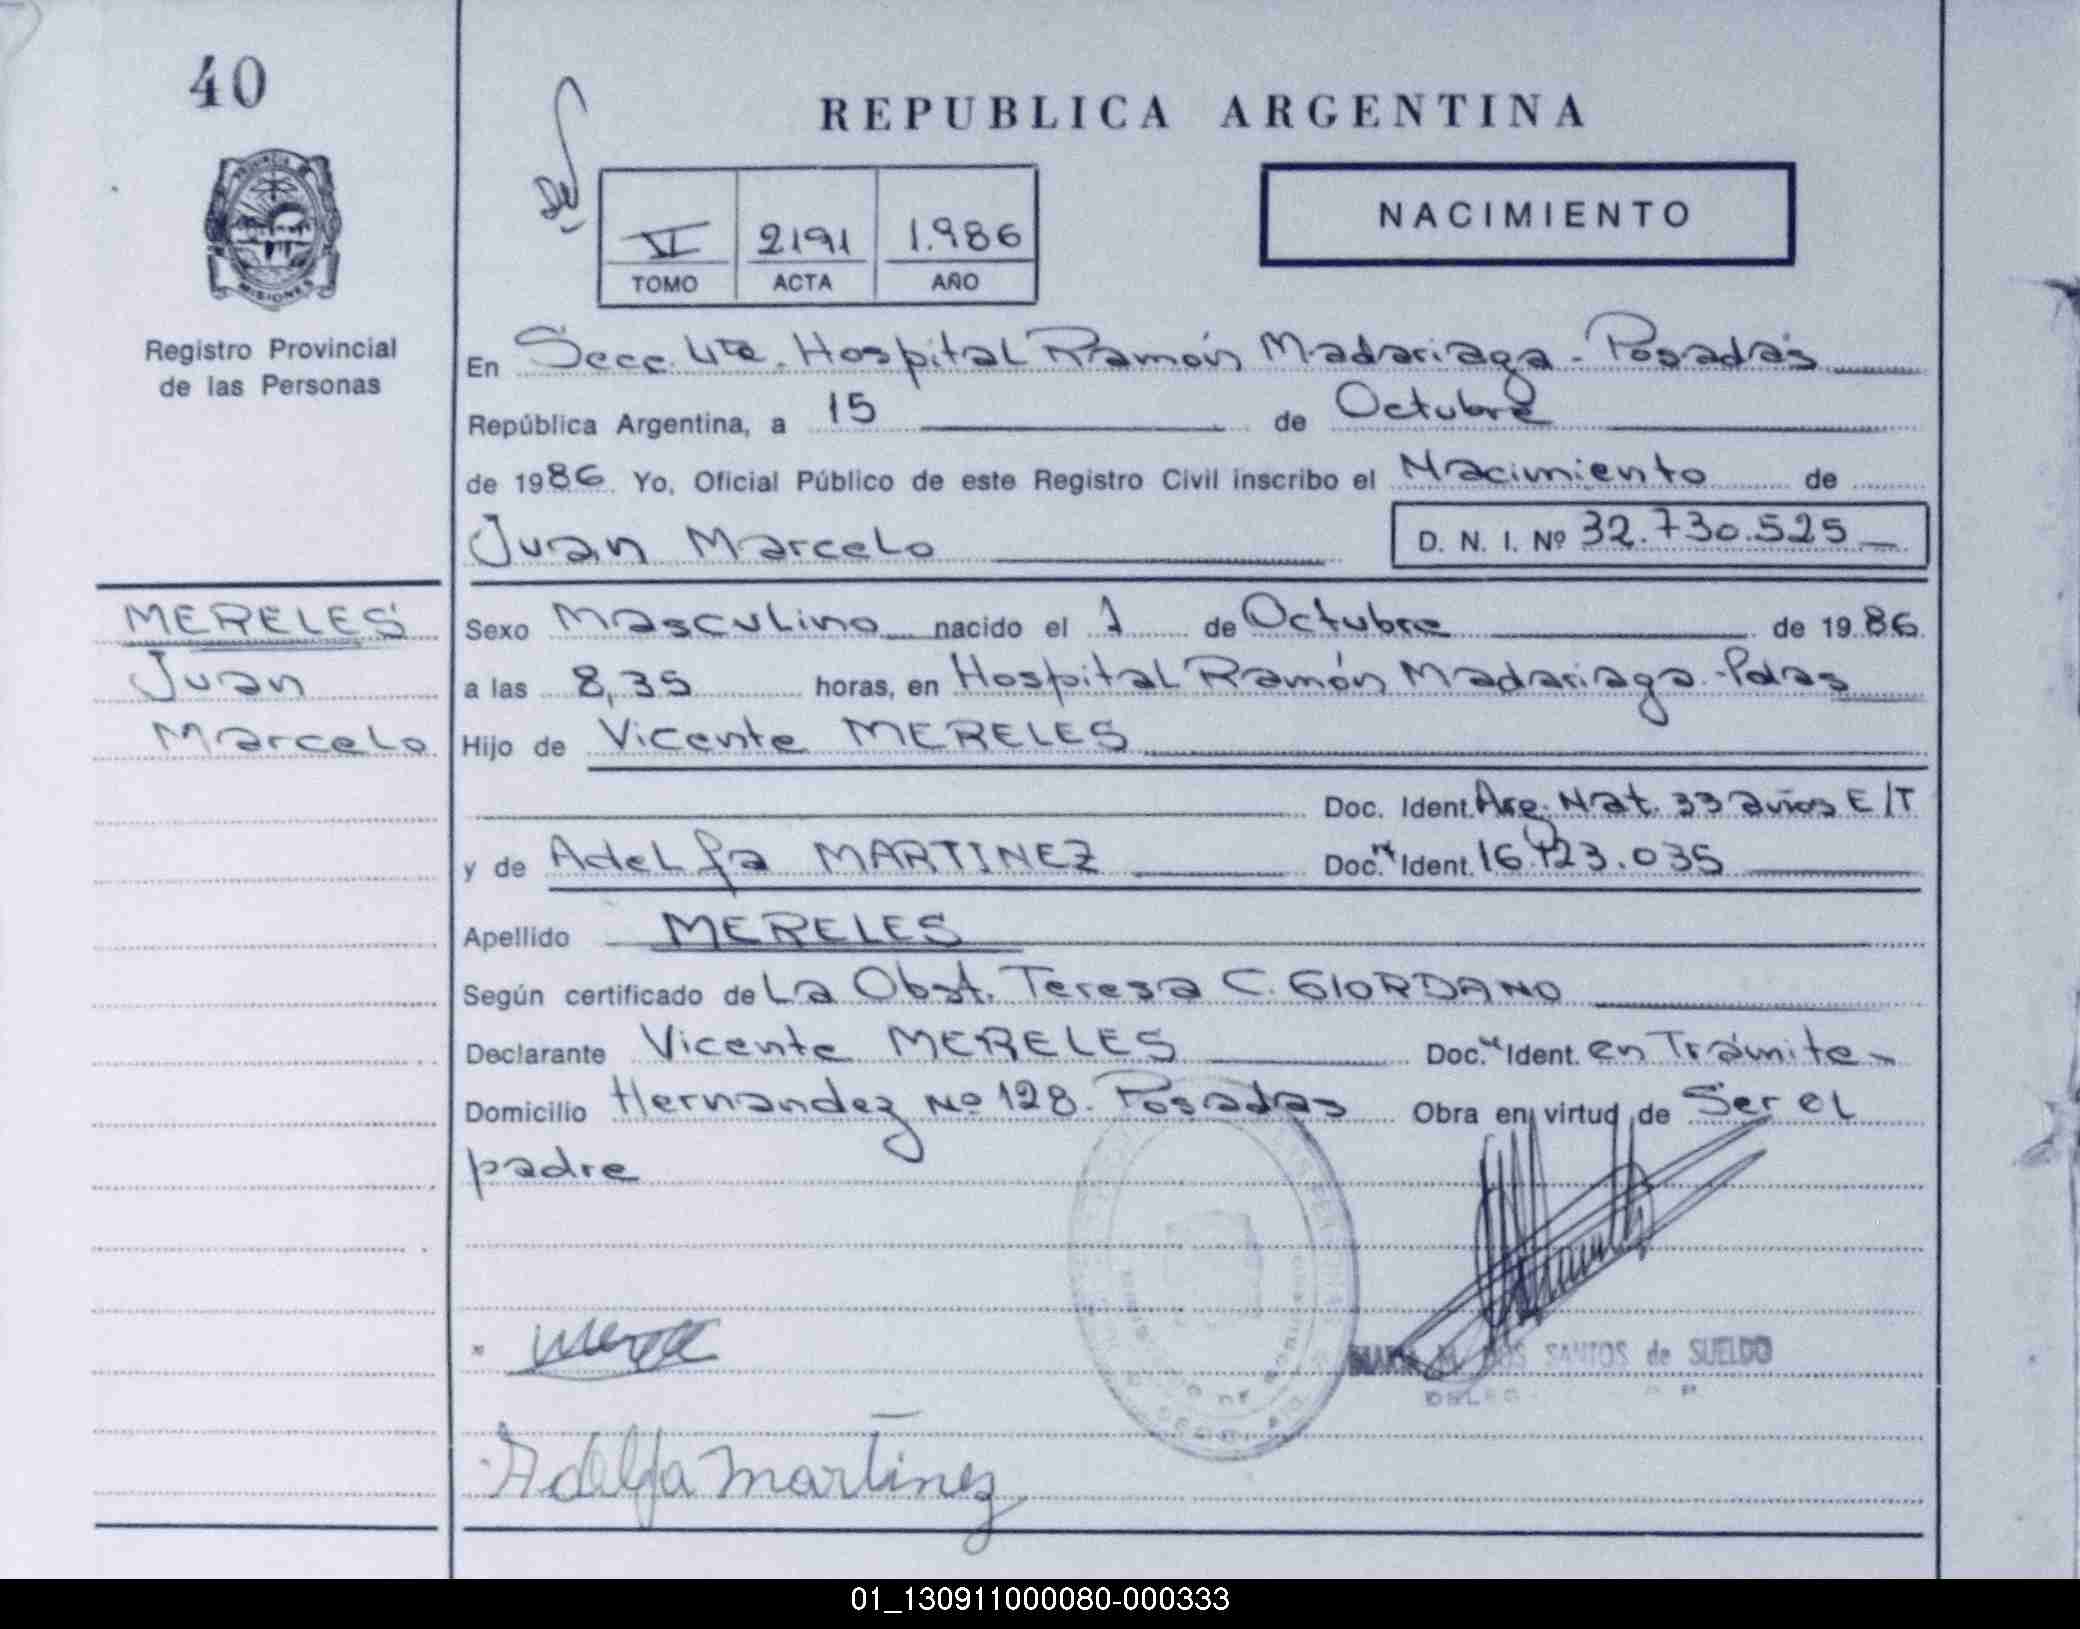 40
REPUBLICA ARGENTINA
PROVINCIA DE
MISIONES
Registro Provincial
de las Personas
VI 2191 1.986
TOMO ACTA AÑO
NACIMIENTO
En Secc. 4ta. Hospital Ramón Madariaga - Posadas
República Argentina, a 15 de Octubre
de 1986. Yo, Oficial Público de este Registro Civil inscribo el Nacimiento de
Juan Marcelo D. N. I. Nº 32.730.525
MERELES
Juan
Marcelo
Sexo Masculino nacido el 1 de Octubre de 1986
a las 8,35 horas, en Hospital Ramón Madariaga - Pdas
Hijo de Vicente MERELES
Doc. Ident. Arg. Nat. 33 años E/T
y de Adelfa MARTINEZ Doc. Ident. 16.123.035
Apellido MERELES
Según certificado de La Obst. Teresa C. GIORDANO
Declarante Vicente MERELES Doc. Ident. en Trámite
Domicilio Hernandez Nº 128. Posadas Obra en virtud de Ser el
padre
DOS SANTOS de SUELDO
Adelfa Martinez
01_130911000080-000333